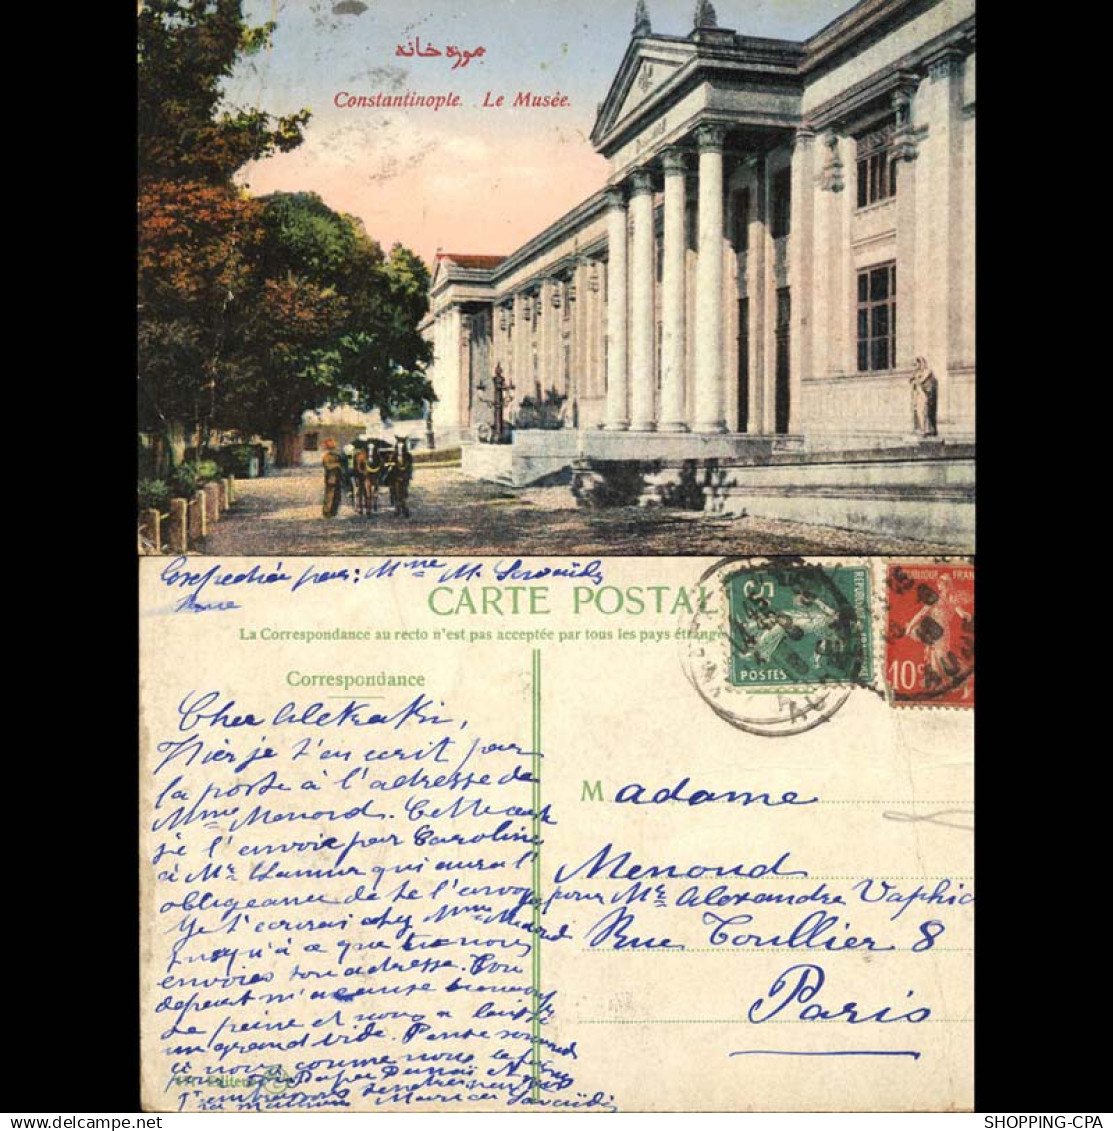 موزه خانه
Constantinople. Le Musée.
pour: Mme M.
CARTE POSTAL
La Correspondance au recto n'est pas acceptée par tous les pays étrange
Correspondance
POSTES
10c
Cher Alekaki,
Hier je t'ai écrit par
la poste à l'adresse de
Mme Menoud. Cette carte
je l'envoie par Caroline
à Mr qui aura l'
obligeance de te l'envoy
Je t'écrirai chez Mme Menoud
jusqu'à ce que tu nous
envoies ton adresse. Ton
départ m'a causé beaucoup
de peine et nous a laissé
un grand vide. Pense souvent
à nous comme nous le faisons
pour toi. Papa
T'embrassons tendrement
Ta
Madame
Menoud
pour Mr Alexandre Vaphia
Rue Toullier 8
Paris
SHOPPING-CPA